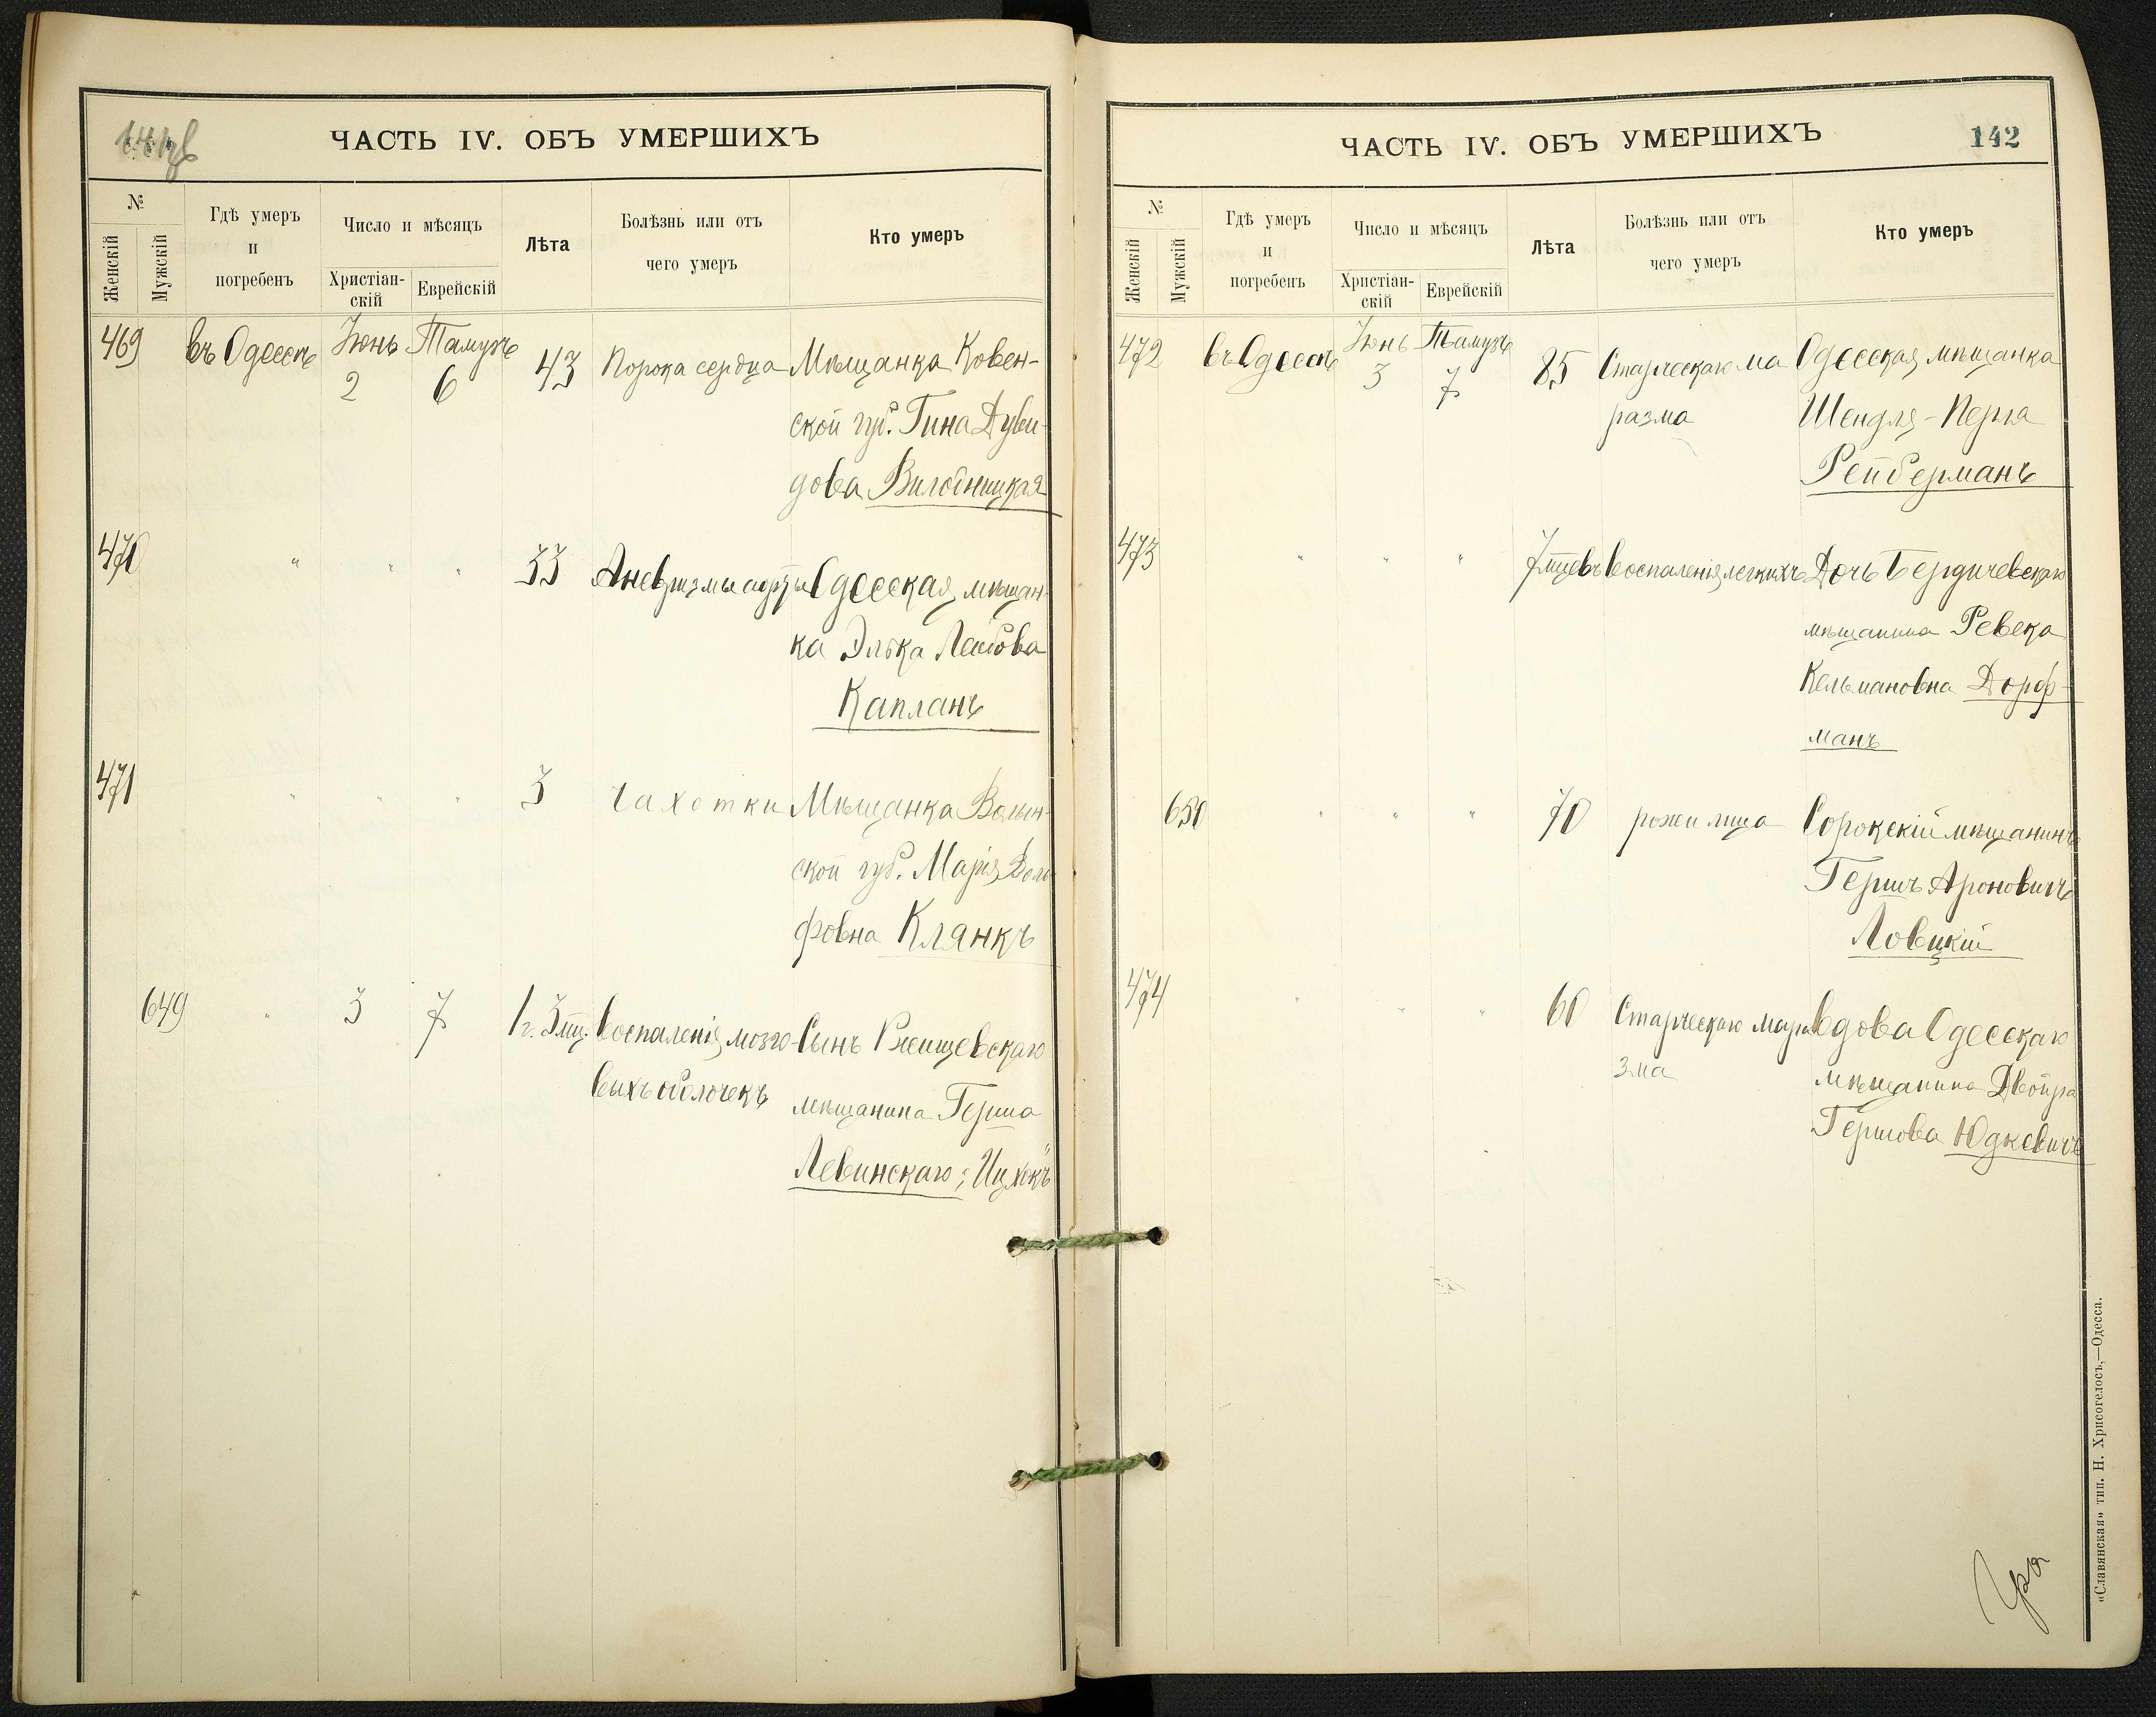 141об
ЧАСТЬ IV. ОБЪ УМЕРШИХЪ
№
Женскій
Мужскій
Гдѣ умеръ
и
погребенъ
Число и мѣсяцъ
Христіан-
скій
Еврейскій
Лѣта
Болѣзнь или отъ
чего умеръ
Кто умеръ
469 въ Одессѣ Іюнь 2 Тамузъ 6 43 Порока сердца Мѣщанка Ковен-
ской губ. Гина Дуви-
дова Вилобницкая
470 " " " 33 Аневризмы аорты Одесская мѣщан-
ка Элька Лейбова
Капланъ
471 " " " 3 Чахотки Мѣщанка Волын-
ской губ. Марія Воль-
фовна Клянкъ
649 " 3 7 1 г. 3 мц. Воспаленія мозго- Сынъ Ржищевскаго
выхъ оболочекъ мѣщанина Герша
Левинскаго; "Ицхокъ"
ЧАСТЬ IV. ОБЪ УМЕРШИХЪ
142
№
Женскій
Мужскій
Гдѣ умеръ
и
погребенъ
Число и мѣсяцъ
Христіан-
скій
Еврейскій
Лѣта
Болѣзнь или отъ
чего умеръ
Кто умеръ
472 въ Одессѣ Іюнь 3 Тамузъ 7 85 Старческаго ма Одесская мѣщанка
разма Шендля-Перля
Рейберманъ
473 " " " 7 мцевъ Воспаленія легкихъ Дочь Бердичевскаго
мѣщанина Ревека
Кельмановна Дорф-
манъ
650 " " " 70 рожи лица Сорокскій мѣщанинъ
Гершъ Ароновичъ
Ловицкій
474 " " " 60 Старческаго мара Вдова Одесскаго
зма мѣщанина Двойра
Гершова Юдкевичъ
«Славянская» тип. Н. Хрисогелосъ,—Одесса.